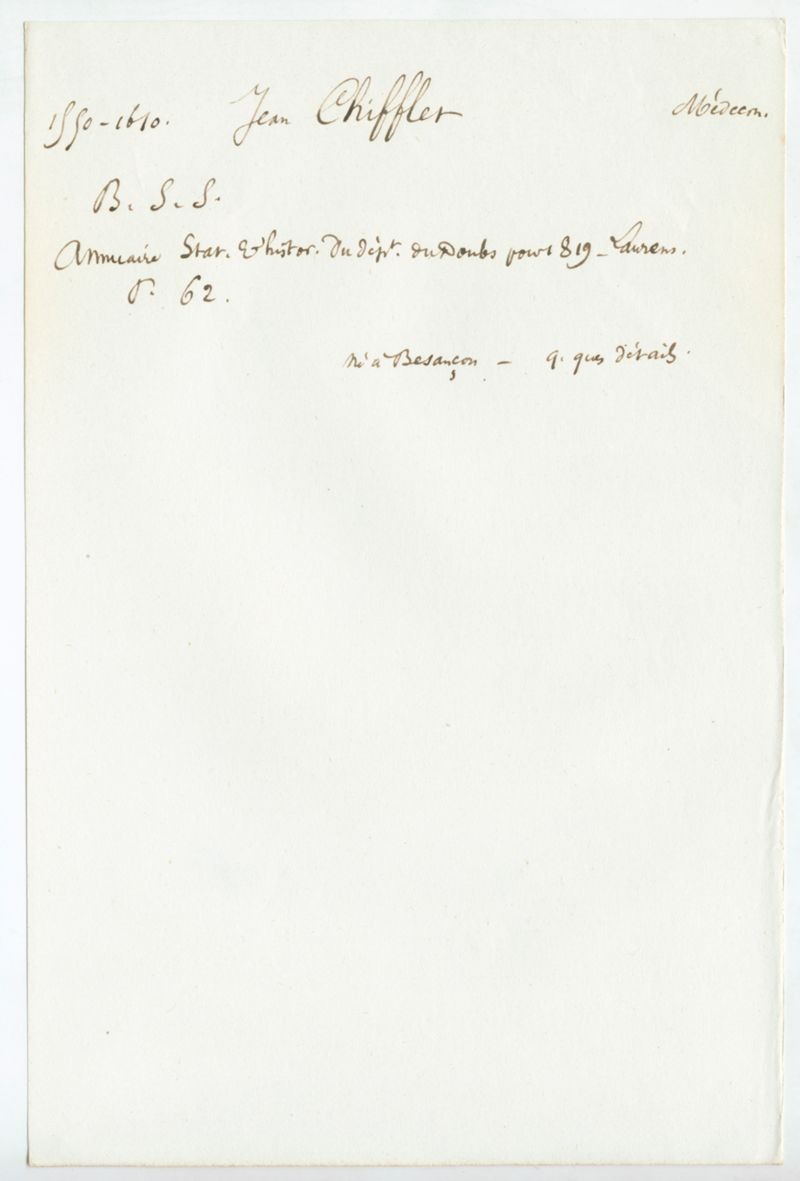 1550-1610. Jean Chifflet Médecin.
B. S. S.
Annuaire Stat. & histor. du dépt. du Doubs pour 1819 - Laurens.
P. 62.
né à Besançon - q. ques détails.